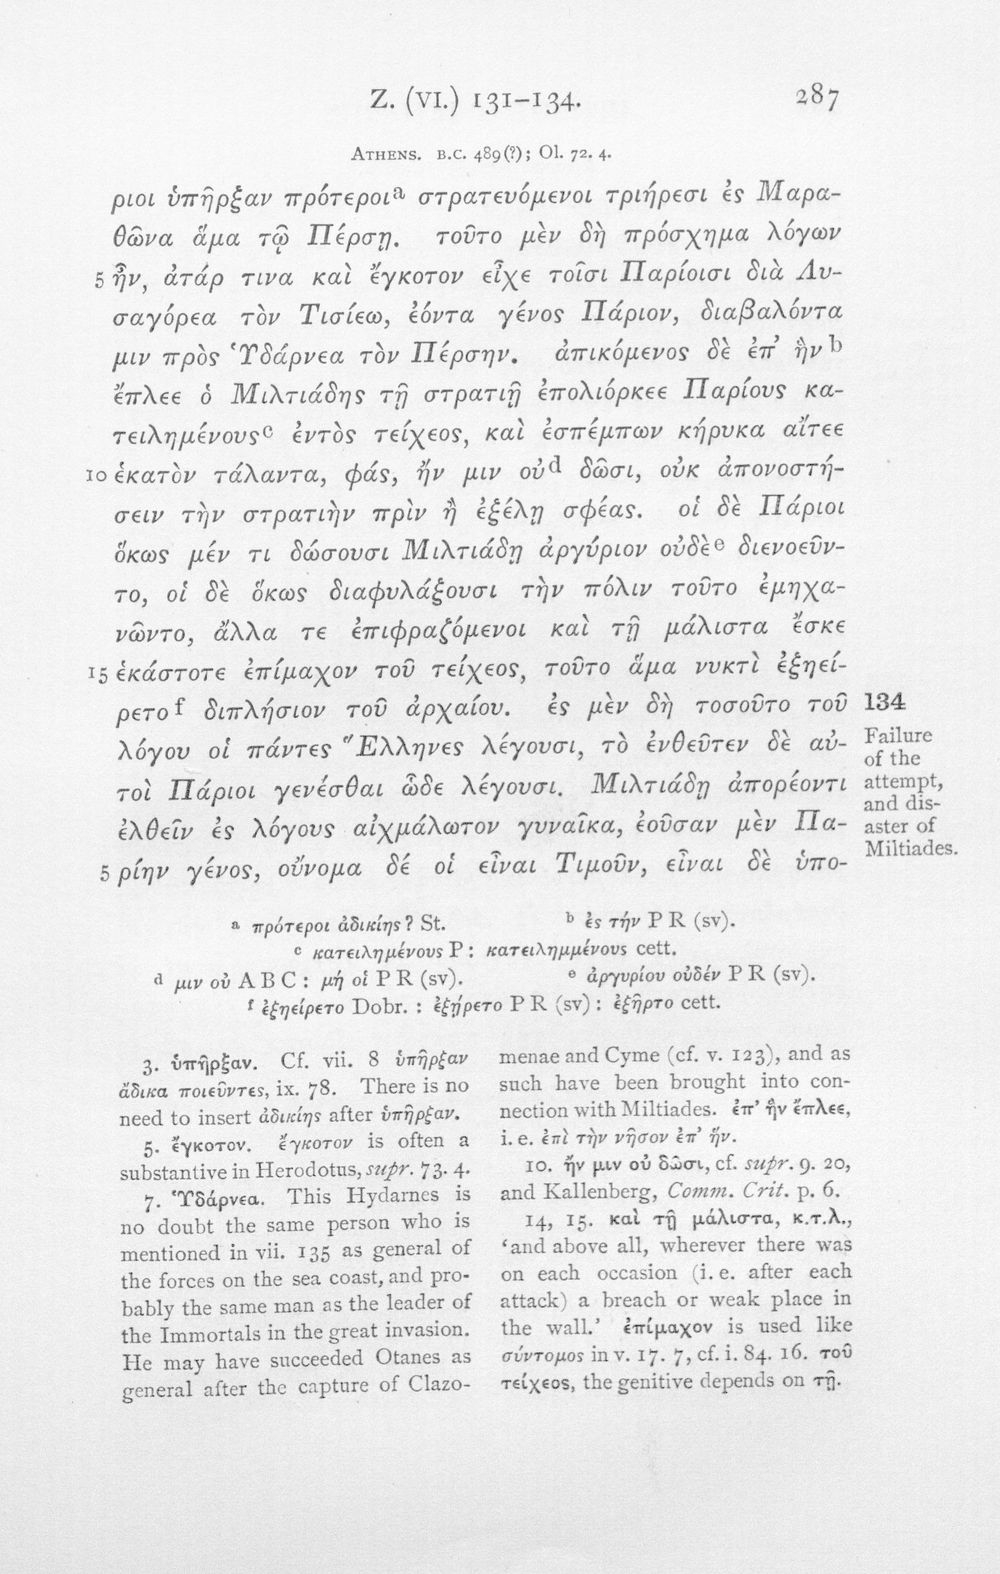 Z. (VI.) 131–134. 287
ATHENS. B.C. 489(?); Ol. 72. 4.
ριοι ὑπῆρξαν πρότεροιa στρατευόμενοι τριήρεσι ἐς Μαρα-
θῶνα ἅμα τῷ Πέρσῃ. τοῦτο μὲν δὴ πρόσχημα λόγων
5 ἦν, ἀτάρ τινα καὶ ἔγκοτον εἶχε τοῖσι Παρίοισι διὰ Λυ-
σαγόρεα τὸν Τισίεω, ἐόντα γένος Πάριον, διαβαλόντα
μιν πρὸς Ὑδάρνεα τὸν Πέρσην. ἀπικόμενος δὲ ἐπ' ἣνb
ἔπλεε ὁ Μιλτιάδης τῇ στρατιῇ ἐπολιόρκεε Παρίους κα-
τειλημένουςc ἐντὸς τείχεος, καὶ ἐσπέμπων κήρυκα αἴτεε
10 ἑκατὸν τάλαντα, φάς, ἤν μιν οὐd δῶσι, οὐκ ἀπονοστή-
σειν τὴν στρατιὴν πρὶν ἢ ἐξέλῃ σφέας. οἱ δὲ Πάριοι
ὅκως μέν τι δώσουσι Μιλτιάδῃ ἀργύριον οὐδὲe διενοεῦν-
το, οἱ δὲ ὅκως διαφυλάξουσι τὴν πόλιν τοῦτο ἐμηχα-
νῶντο, ἄλλα τε ἐπιφραζόμενοι καὶ τῇ μάλιστα ἔσκε
15 ἑκάστοτε ἐπίμαχον τοῦ τείχεος, τοῦτο ἅμα νυκτὶ ἐξηεί-
ρετοf διπλήσιον τοῦ ἀρχαίου. ἐς μὲν δὴ τοσοῦτο τοῦ 134
λόγου οἱ πάντες Ἕλληνες λέγουσι, τὸ ἐνθεῦτεν δὲ αὐ-
τοὶ Πάριοι γενέσθαι ὧδε λέγουσι. Μιλτιάδῃ ἀπορέοντι
ἐλθεῖν ἐς λόγους αἰχμάλωτον γυναῖκα, ἐοῦσαν μὲν Πα-
5 ρίην γένος, οὔνομα δέ οἱ εἶναι Τιμοῦν, εἶναι δὲ ὑπο-
Failure
of the
attempt,
and dis-
aster of
Miltiades.
a πρότεροι ἀδικίης? St. b ἐς τήν P R (sv).
c κατειλημένους P: κατειλημμένους cett.
d μιν οὐ A B C: μή οἱ P R (sv). e ἀργυρίου οὐδέν P R (sv).
f ἐξηείρετο Dobr. : ἐξῄρετο P R (sv): ἐξῆρτο cett.
3. ὑπῆρξαν. Cf. vii. 8 ὑπῆρξαν
ἄδικα ποιεῦντες, ix. 78. There is no
need to insert ἀδικίης after ὑπῆρξαν.
5. ἔγκοτον. ἔγκοτον is often a
substantive in Herodotus, supr. 73. 4.
7. Ὑδάρνεα. This Hydarnes is
no doubt the same person who is
mentioned in vii. 135 as general of
the forces on the sea coast, and pro-
bably the same man as the leader of
the Immortals in the great invasion.
He may have succeeded Otanes as
general after the capture of Clazo-
menae and Cyme (cf. v. 123), and as
such have been brought into con-
nection with Miltiades. ἐπ' ἣν ἔπλεε,
i. e. ἐπὶ τὴν νῆσον ἐπ' ἥν.
10. ἤν μιν οὐ δῶσι, cf. supr. 9. 20,
and Kallenberg, Comm. Crit. p. 6.
14, 15. καὶ τῇ μάλιστα, κ.τ.λ.,
'and above all, wherever there was
on each occasion (i. e. after each
attack) a breach or weak place in
the wall.' ἐπίμαχον is used like
σύντομος in v. 17. 7, cf. i. 84. 16. τοῦ
τείχεος, the genitive depends on τῇ.